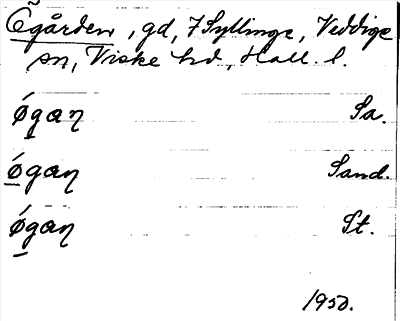 Ögården, gd, 7 Syllinge, Veddige
sn, Viske hd, Hall. l.
ógaŋ Sa.
ógaŋ Sand.
ógaŋ St.
1950.